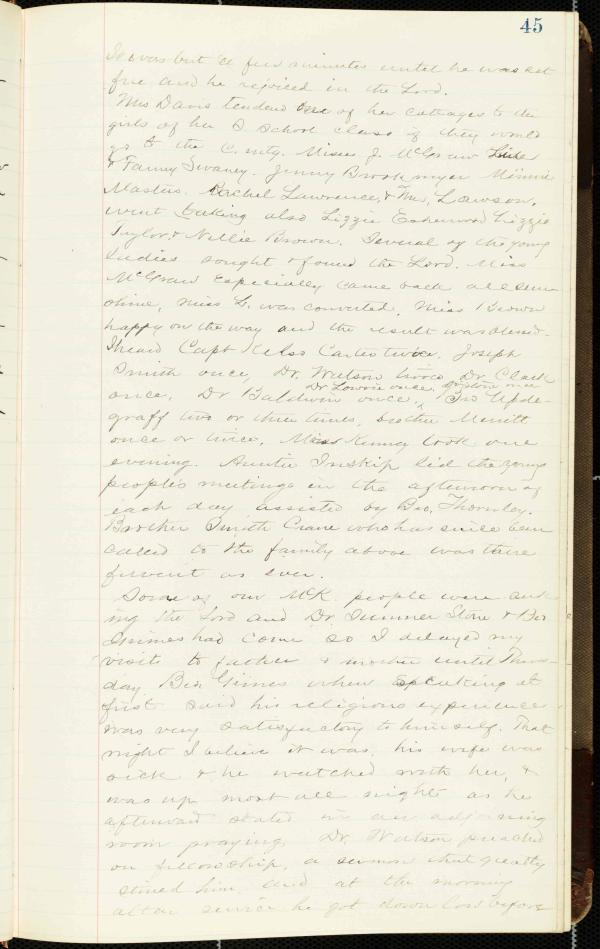 45
It was but a few minutes until he was set
free and he rejoiced in the Lord.
Mrs Davis tendered one of her cottages to the
girls of her S School class if they would
go to the C. mtg. Misses J. McGraw
& Fanny Swaney. Jenny Brookmyer Minnie
Masters. Rachel Lawrence, & Mrs, Lawson.
went taking also Lizzie Lizzie
Taylor, & Nellie Brown. Several of the young
ladies sought & found the Lord. Miss
McGraw Especially came back all sun
shine, Miss L. was converted, Miss Brown
happy on the way and the result was blessed.
I heard Capt Kelso Carter twice, Joseph
Smith once, Dr. Watson twice Dr. Clark
Dr Lowrie once,
once, Dr Baldwin once. Bro Upde-
graff two or three times, brother Merritt
once or twice, Miss Kenney took one
evening. Auntie Inskip led the young
people's meetings in the afternoon of
each day assisted by Bro, Thornley.
Brother Smith Crane who has since been
called to the family above was there
fervent as ever.
Some of our McK. people were seek
ing the Lord and Dr, Sumner Stone & Bro
Grimes had come so I delayed my
visits to father & mother until Thurs-
day Bro Grimes when speaking at
first said his religious experience
was very satisfactory to himself. That
night I believe it was, his wife was
sick & he watched with her, &
was up most all night as he
afterward stated in an adjoining
room praying. Dr, Watson preached
on fellowship, a sermon that greatly
stirred him, and at the morning
altar service he got down low before